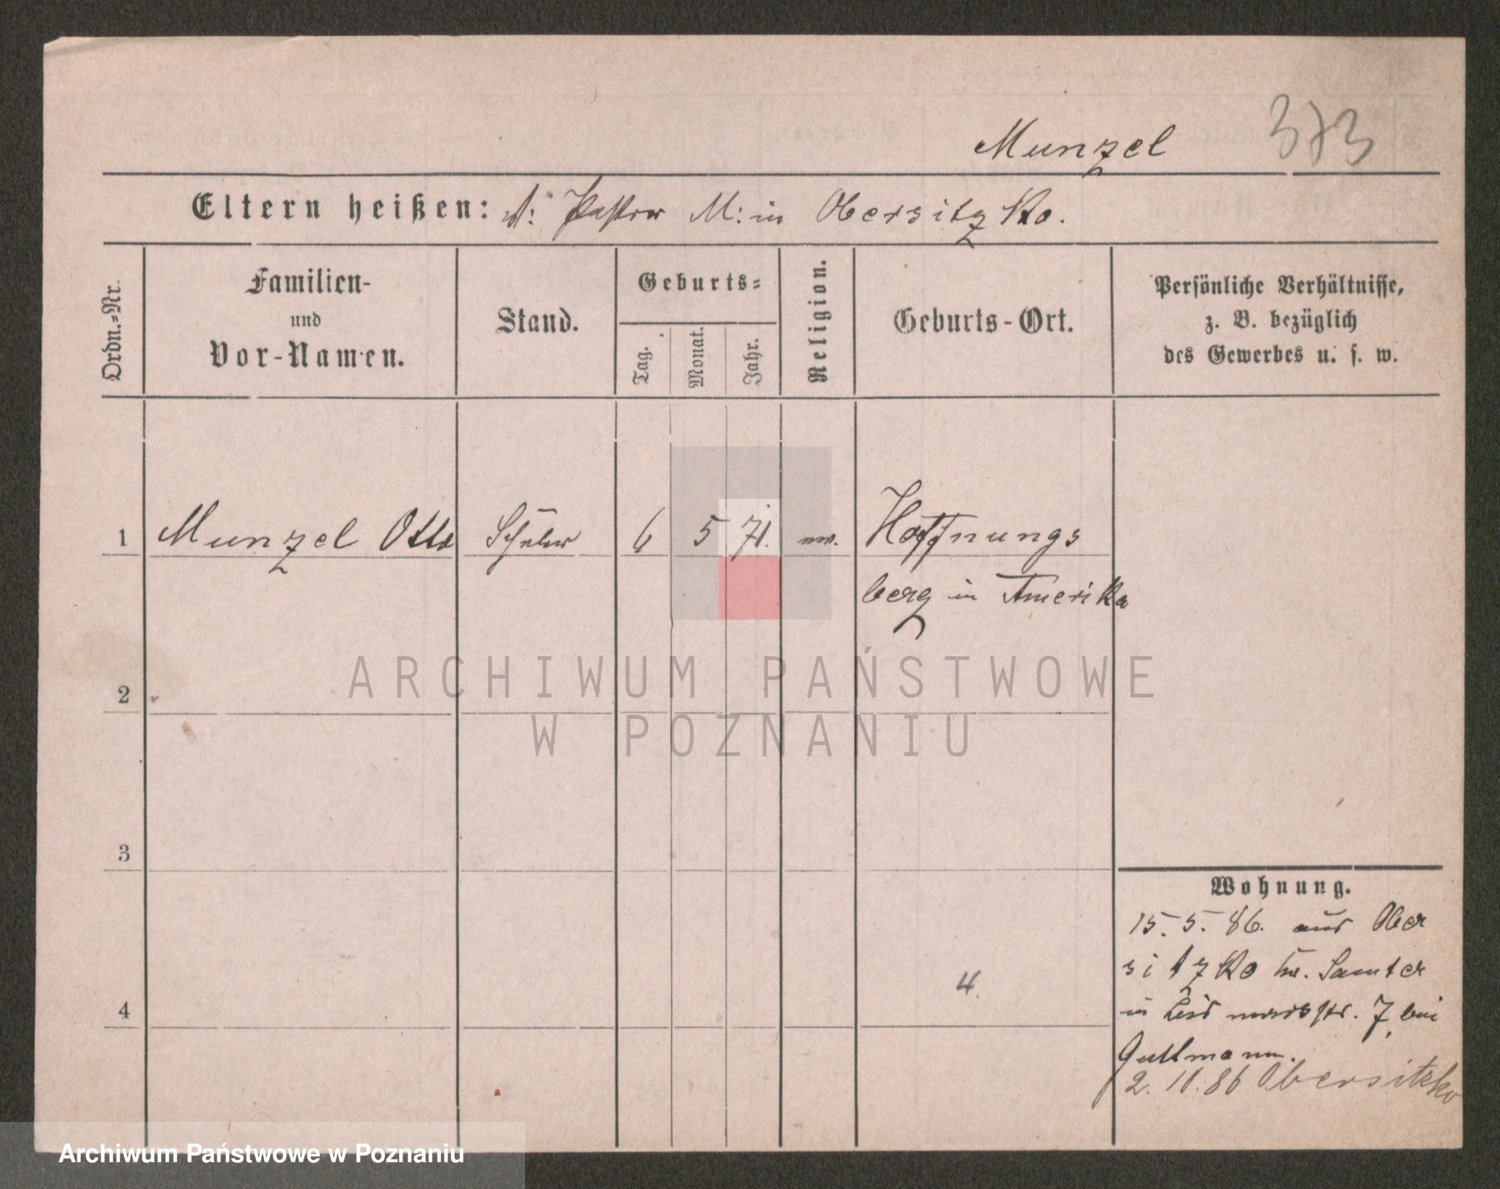 Munzel 373
Eltern heißen: A: Pastor M: in Obersitzko.
Ordn.=Nr.
Familien-
und
Vor-Namen.
Stand.
Geburts=
Tag.
Monat.
Jahr.
Religion.
Geburts-Ort.
Persönliche Verhältnisse,
z. B. bezüglich
des Gewerbes u. s. w.
1 Munzel Otto Schüler 6 5 71. Hoffnungs
berg in Amerika
2
3
4
4.
Wohnung.
15.5.86. aus Ober
sitzko Kr. Samter
in 7 bei
Guttmann.
2.10.86 Obersitzko
ARCHIWUM PAŃSTWOWE
W POZNANIU
Archiwum Państwowe w Poznaniu